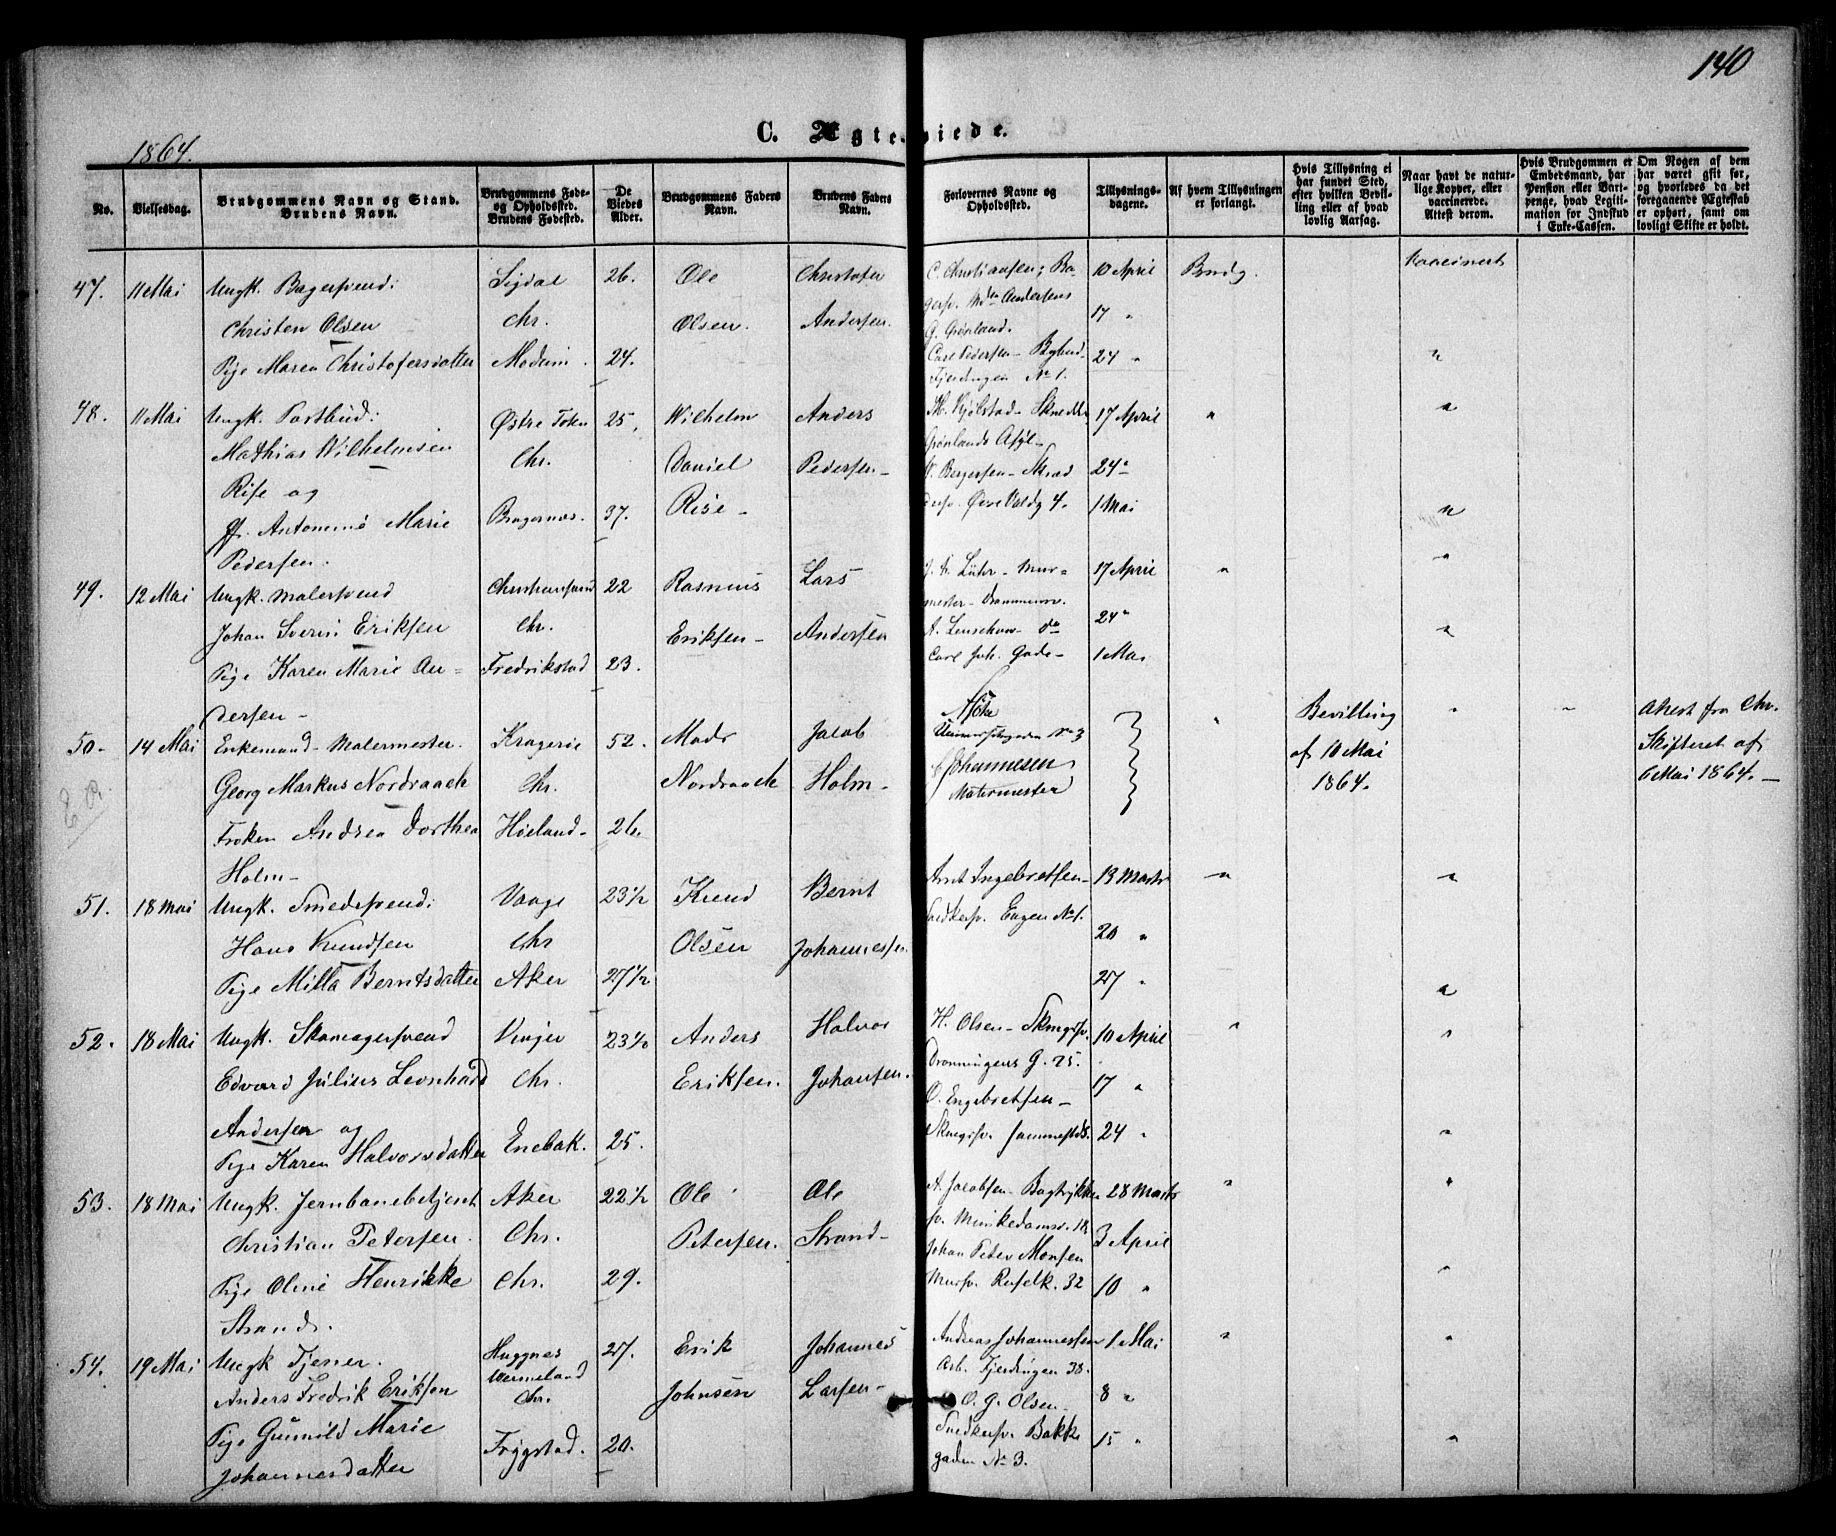 140
1864.
C. Ægteviede.
No.
Vielsesdag.
Brudgommens Navn og Stand.
Brudens Navn.
Brudgommens Føde-
og Opholdssted.
Brudens Fødested.
De
Viedes
Alder.
Brudgommens Faders
Navn.
Brudens Faders
Navn.
Forlovernes Navne og
Opholdssted.
Tillysnings-
dagene.
Af hvem Tillysningen
er forlangt.
Hvis Tillysning ei
har fundet Sted,
efter hvilken Bevil-
ling eller af hvad
lovlig Aarsag.
Naar havt de natur-
lige Kopper, eller
vaccinerede.
Attest derom.
Hvis Brudgommen er
Embedsmand, har
Pension eller Vart-
penge, hvad Legiti-
mation for Indskud
i Enke-Cassen.
Om Nogen af dem
har været gift før,
og hvorledes da det
foregaaende Ægteskab
er ophørt, samt om
lovligt Skifte er holdt.
47. 11 Mai Ungk. Bagersvend: Sigdal 26. Ole Christofer C. Christiansen; Ba- 10 April Brudg. Vaccineret
Christen Olsen Chr. Olsen. Andersen. Andersens 17 "
G. Grønland.
Pige Maren Christofersdatter Modum. 24. Carl Pedersen 24 " "
Fjerdingen No 1.
48. 11 Mai Ungk. Portbud: Østre Toten 25. Wilhelm Anders 17 April " "
Mathias Wilhelmsen Chr. Daniel Pedersen - Grønlands
Rise og Rise - Bergersen - 24 "
Antonine Marie Bragernæs. 37. 4. 1 Mai "
Pedersen.
49. 12 Mai Ungk. Malersvend Christiansand 22 Rasmus Lars Lühr - Mur- 17 April " "
Johan Severin Eriksen Chr. Eriksen - Andersen mester - 24 " "
Pige Karen Marie An- Fredrikstad 23. Carl Joh. Gade - 1 Mai
dersen -
50. 14 Mai Enkemand - Malermester. Kragerø 52. Mads Jacob Universitetsgaden No 3 " Bevilling " " Attest fra Chr.
Georg Markus Nordraach Chr. Nordraach Holm - Johannesen af 10 Mai Skifteret af
Malermester 1864. 6 Mai 1864. -
Frøken Andrea Dorthea Høiland - 26.
Holm -
51. 18 Mai Ungk. Smedesvend: Vaage 23 1/2 Knud Bernt Arnt Ingebretsen - 13 Marts " "
Hans Knudsen Chr Olsen Johannesen Snedkersv. Engen No 1. 20 "
Pige Milla Berntsdatter Aker 27 1/2 27 " "
52. 18 Mai Ungk. Skomagersvend Vinger 23 1/2 Anders Halvor H. Olsen - 10 April " "
Edvard Julius Leonhard Chr. Eriksen. Johansen. Dronningens G. 25. 17 "
O. Engebretsen -
Andersen og Skmgsv. sammesteds. 24 " "
Pige Karen Halvorsdatter Enebak. 25.
53. 18 Mai Ungk. Jernbanebetjent Aker 22 1/2 Ole Ole A. Jacobsen - Bogtrykker 28 Marts " "
Christian Petersen. Chr. Petersen. Strand - Munkedamsv. 18 3 April
Johan Peter Monsen
Pige Oline Henrikke Chr. 29. Mursv. Roselk. 32 10 " "
Strand.
54. 19 Mai Ungk Tjener. Huggnes 27. Erik Johannes Andreas Johannessen 1 Mai " "
Anders Fredrik Eriksen Wermeland Johnsen Larsen - Arb. Fjerdingen 38. 8 "
Chr. O. G. Olsen -
Pige Gunnild Marie Trygstad. 20. Snedkersv. Bakke 15 " "
Johannesdatter gaden No 3.